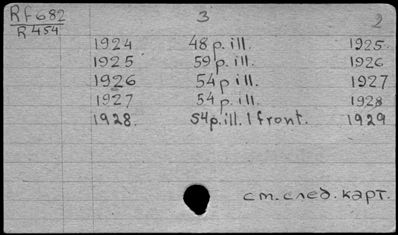 Rf682 3 2
R454
1924 48 p. ill. 1925
1925 59 p. ill. 1926
1926 54 p ill. 1927
1927 54 p. ill. 1928
1928. 54p. ill. 1 front. 1929
ст. след. карт.